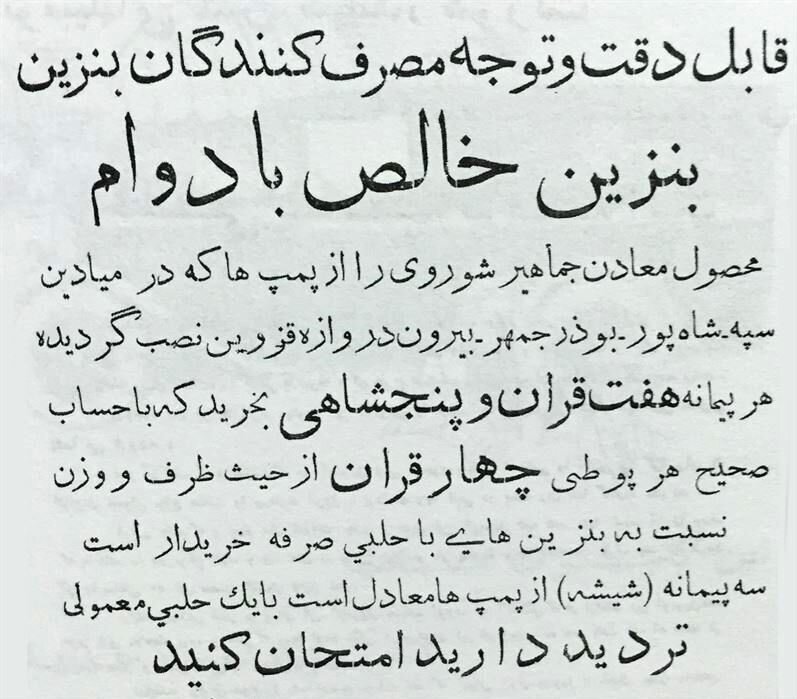 قابل دقت و توجه مصرف کنندگان بنزین
بنزین خالص با دوام
محصول معادن جماهیر شوروی را از پمپ ها که در میادین
سپه ـ شاه پور ـ بوذرجمهر ـ بیرون دروازه قزوین نصب گردیده
هر پیمانه هفت قران و پنجشاهی بخرید که با حساب
صحیح هر پوطی چهار قران از حیث ظرف و وزن
نسبت به بنزین هایی با حلبی صرفه خریدار است
سه پیمانه (شیشه) از پمپ ها معادل است با یك حلبی معمولی
تردید دارید امتحان کنید